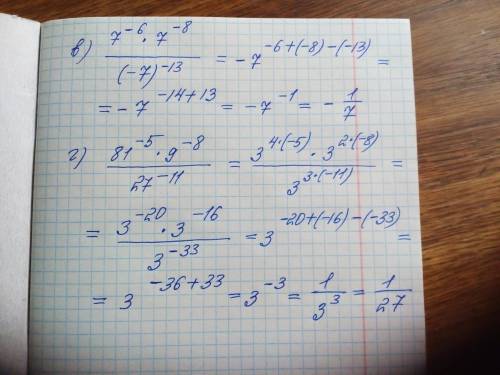 в) \frac{7^{-6} \cdot 7^{-8}}{(-7)^{-13}} = -7^{-6+(-8)-(-13)} =
= -7^{-14+13} = -7^{-1} = -\frac{1}{7}
г) \frac{81^{-5} \cdot 9^{-8}}{27^{-11}} = \frac{3^{4 \cdot (-5)} \cdot 3^{2 \cdot (-8)}}{3^{3 \cdot (-11)}} =
= \frac{3^{-20} \cdot 3^{-16}}{3^{-33}} = 3^{-20+(-16)-(-33)} =
= 3^{-36+33} = 3^{-3} = \frac{1}{3^3} = \frac{1}{27}